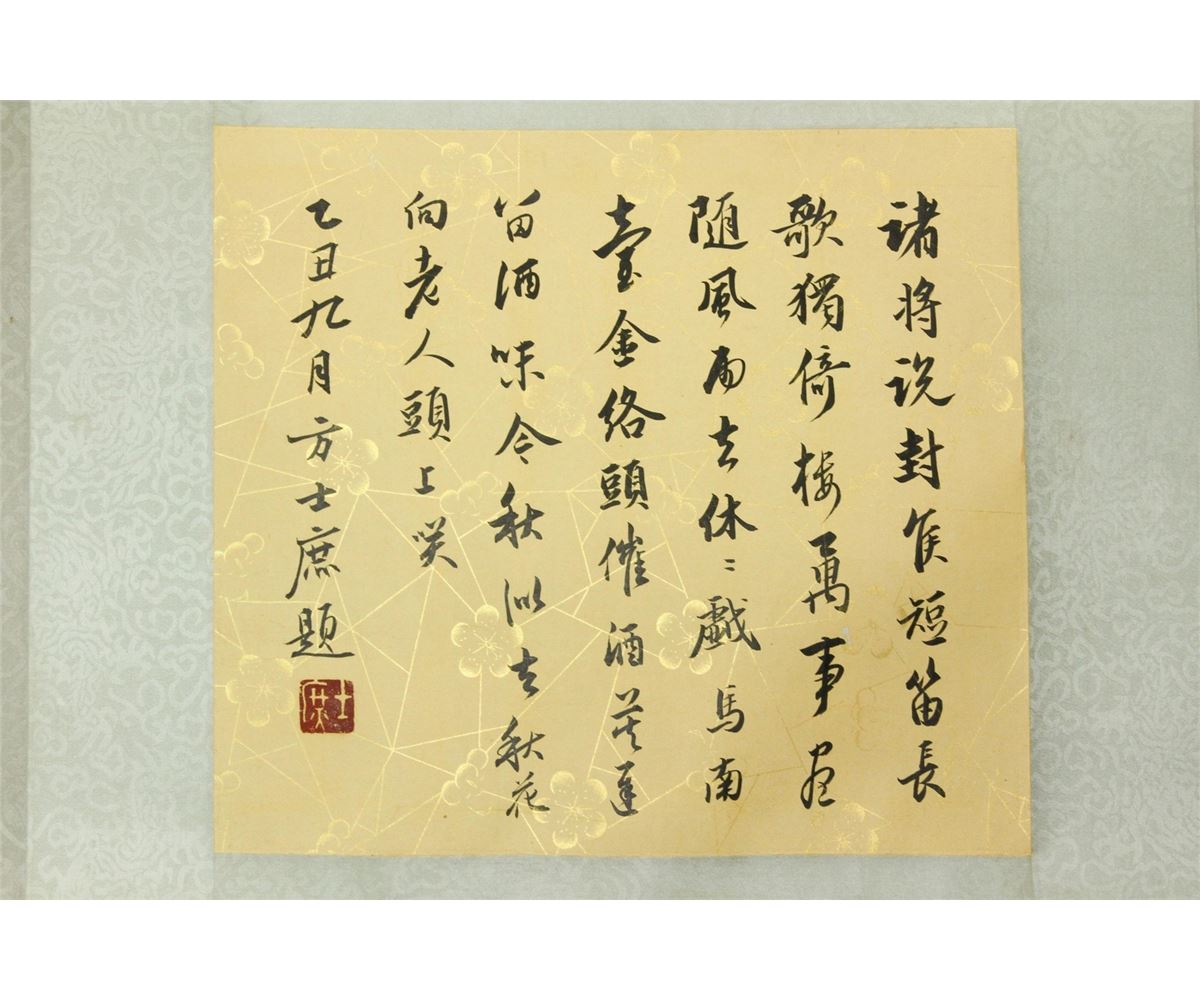 諸將説封侯短笛長
歌獨倚樓萬事盡
隨風雨去休〻戲馬南
臺金絡頭催酒莫遲
留酒味今秋似去秋花
向老人頭上咲
乙丑九月方士庶題
士庶